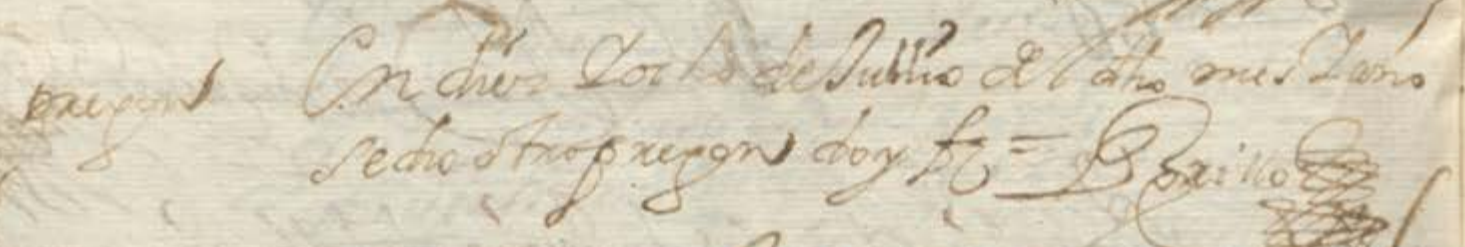 pregon
En diez y ocho de Jullio del dho mes y año
se dio otro pregon doy fe =